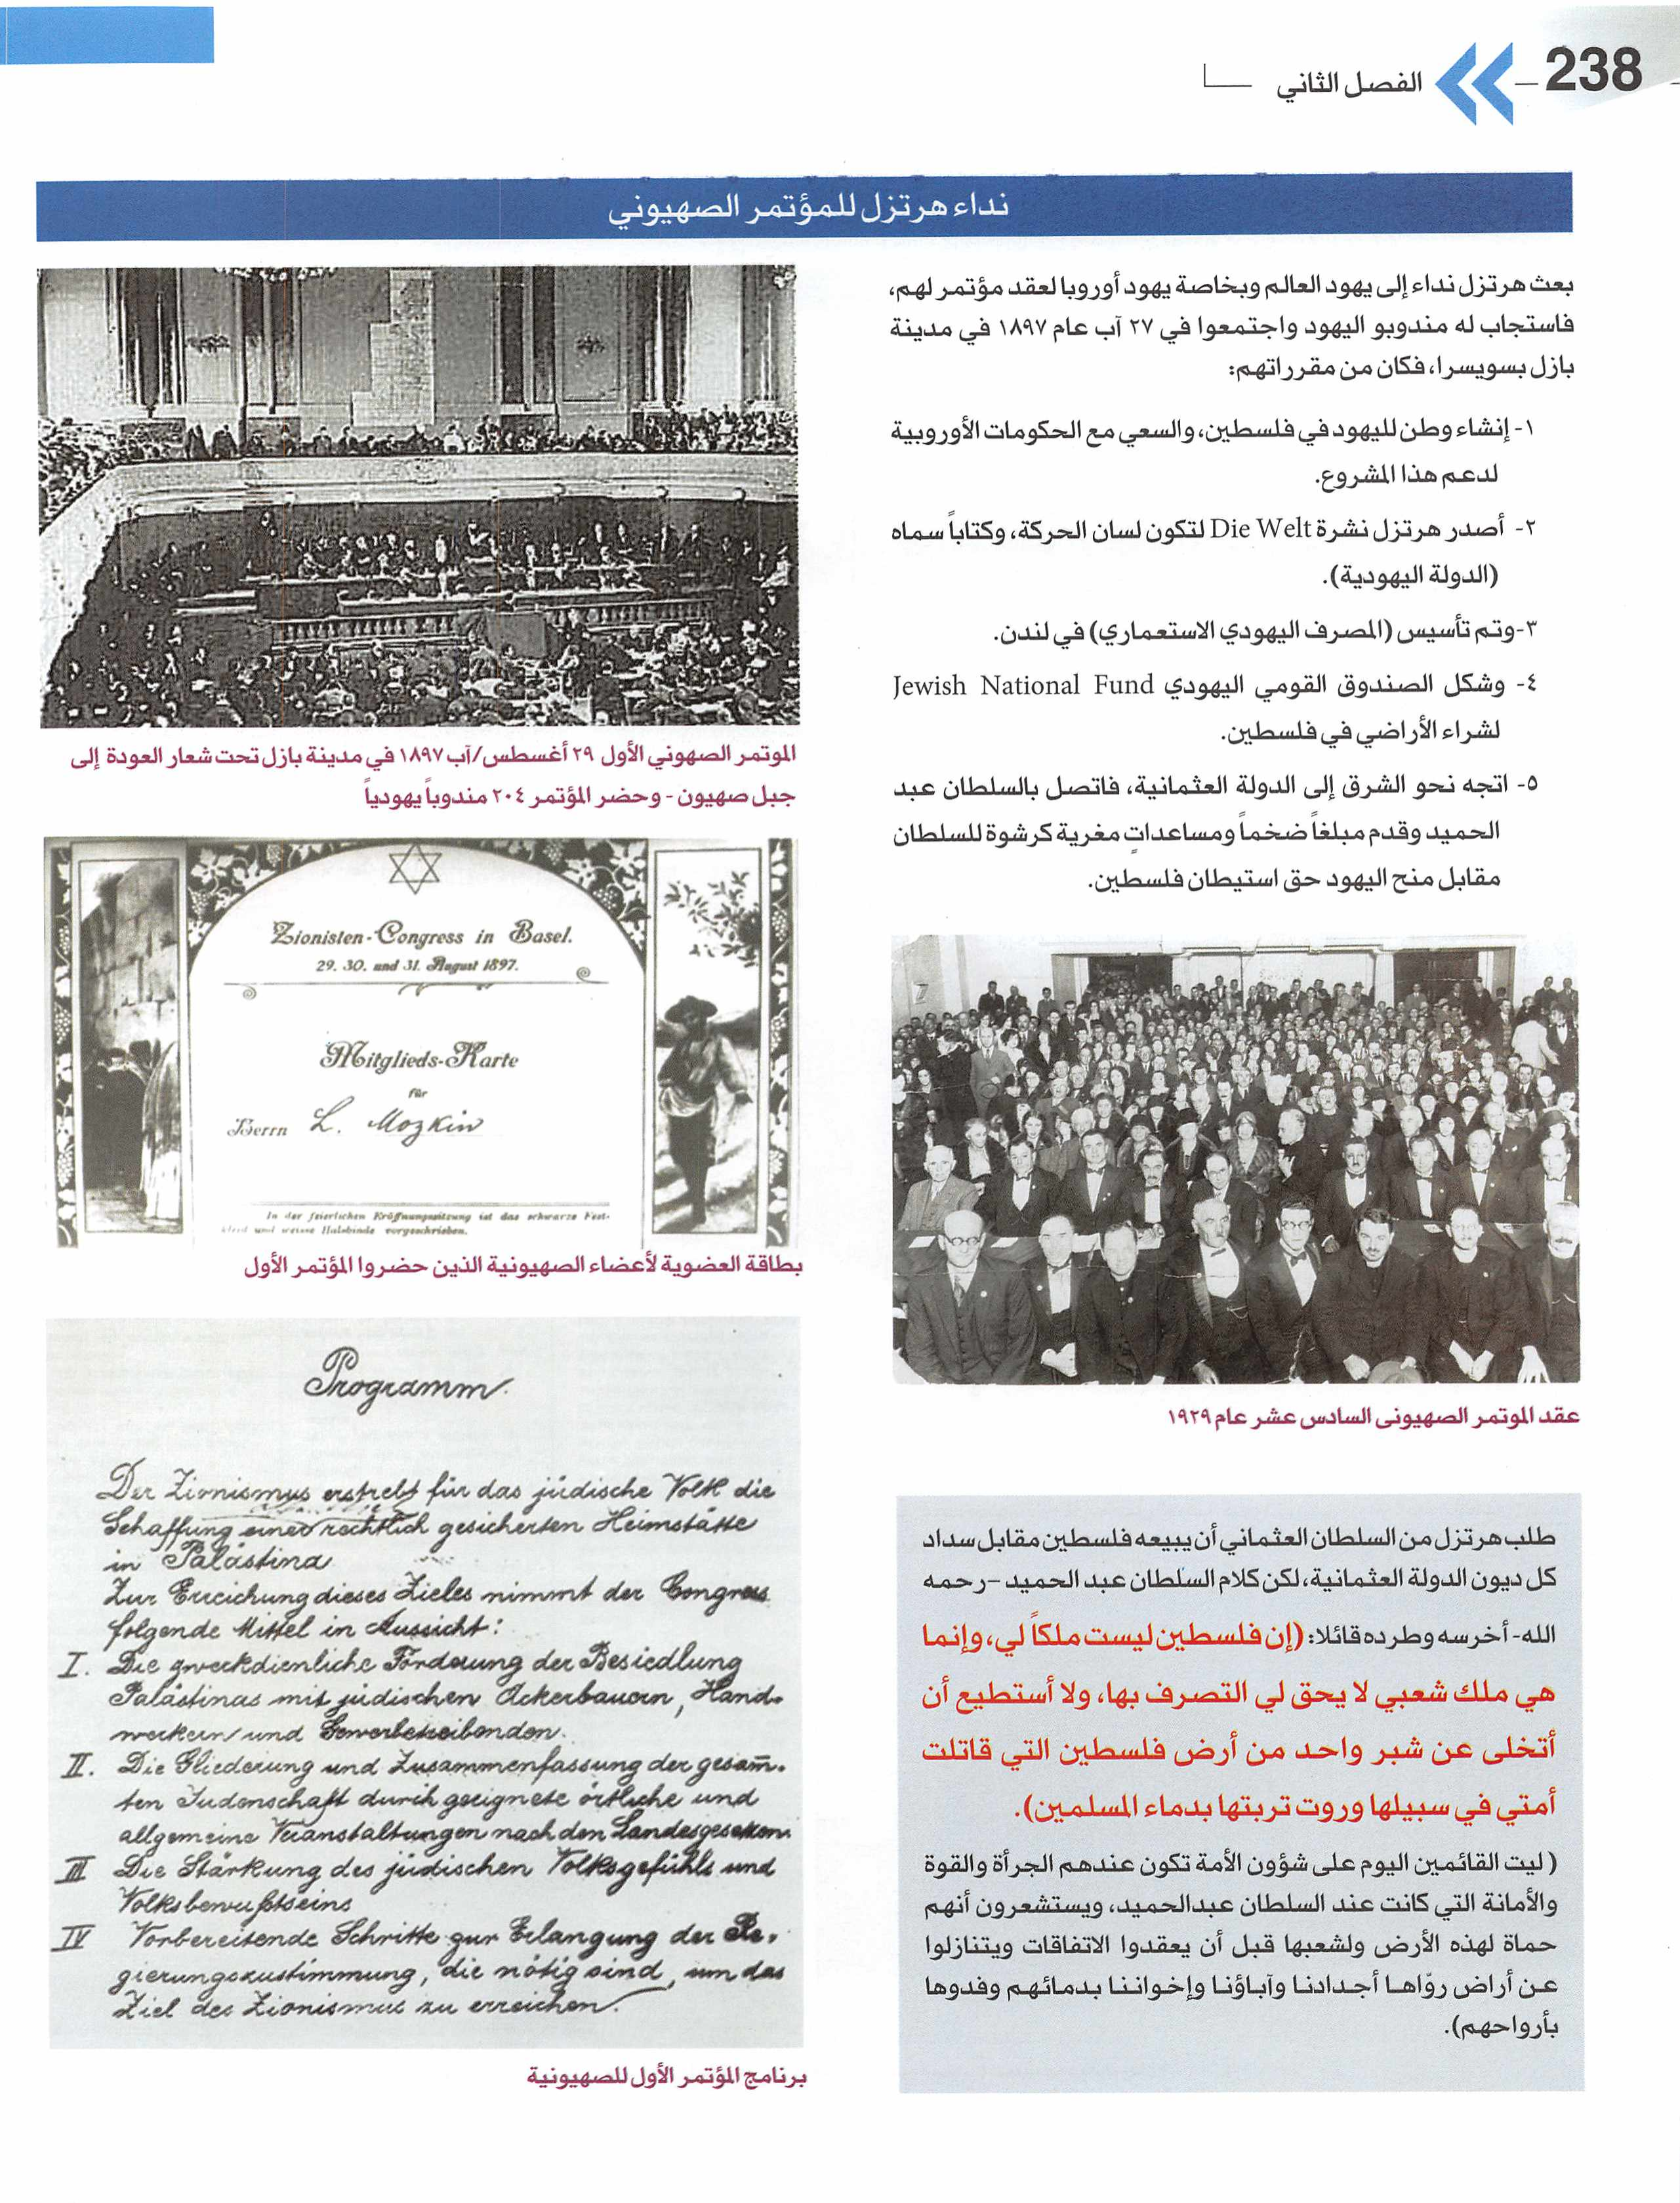 238
الفصل الثاني
نداء هرتزل للمؤتمر الصهيوني
بعث هرتزل نداء إلى يهود العالم وبخاصة يهود أوروبا لعقد مؤتمر لهم،
فاستجاب له مندوبو اليهود واجتمعوا في ٢٧ آب عام ١٨٩٧ في مدينة
بازل بسويسرا، فكان من مقرراتهم:
١- إنشاء وطن لليهود في فلسطين، والسعي مع الحكومات الأوروبية
لدعم هذا المشروع.
٢- أصدر هرتزل نشرة Die Welt لتكون لسان الحركة، وكتاباً سماه
(الدولة اليهودية).
٣-وتم تأسيس (المصرف اليهودي الاستعماري) في لندن.
٤- وشكل الصندوق القومي اليهودي Jewish National Fund
لشراء الأراضي في فلسطين.
٥- اتجه نحو الشرق إلى الدولة العثمانية، فاتصل بالسلطان عبد
الحميد وقدم مبلغاً ضخماً ومساعداتٍ مغرية كرشوة للسلطان
مقابل منح اليهود حق استيطان فلسطين.
عقد الموتمر الصهيونى السادس عشر عام ١٩٢٩
طلب هرتزل من السلطان العثماني أن يبيعه فلسطين مقابل سداد
كل ديون الدولة العثمانية، لكن كلام السلطان عبد الحميد –رحمه
الله- أخرسه وطرده قائلا: (إن فلسطين ليست ملكاً لي، وإنما
هي ملك شعبي لا يحق لي التصرف بها، ولا أستطيع أن
أتخلى عن شبر واحد من أرض فلسطين التي قاتلت
أمتي في سبيلها وروت تربتها بدماء المسلمين).
( ليت القائمين اليوم على شؤون الأمة تكون عندهم الجرأة والقوة
والأمانة التي كانت عند السلطان عبدالحميد، ويستشعرون أنهم
حماة لهذه الأرض ولشعبها قبل أن يعقدوا الاتفاقات ويتنازلوا
عن أراض روّاها أجدادنا وآباؤنا وإخواننا بدمائهم وفدوها
بأرواحهم).
الموتمر الصهوني الأول ٢٩ أغسطس/آب ١٨٩٧ في مدينة بازل تحت شعار العودة إلى
جبل صهيون - وحضر المؤتمر ٢٠٤ مندوباً يهودياً
Zionisten-Congress in Basel.
29. 30. und 31. August 1897.
Mitglieds-Karte
für
Herrn L. Mozkin
In der feierlichen Eröffnungssitzung ist das schwarze Fest-
kleid und weisse Halsbinde vorgeschrieben.
بطاقة العضوية لأعضاء الصهيونية الذين حضروا المؤتمر الأول
Programm.
Der Zionismus erstrebt für das jüdische Volk die
Schaffung einer rechtlich gesicherten Heimstätte
in Palästina
Zur Erreichung dieses Zieles nimmt der Congress
folgende Mittel in Aussicht:
I. Die zweckdienliche Förderung der Besiedlung
Palästinas mit jüdischen Ackerbauern, Hand-
werkern und Gewerbetreibenden.
II. Die Gliederung und Zusammenfassung der gesam̄-
ten Judenschaft durch geeignete örtliche und
allgemeine Veranstaltungen nach den Landesgesetzen.
III Die Stärkung des jüdischen Volksgefühls und
Volksbewußtseins
IV Vorbereitende Schritte zur Erlangung der Re-
gierungszustimmung, die nötig sind, um das
Ziel des Zionismus zu erreichen.
برنامج المؤتمر الأول للصهيونية